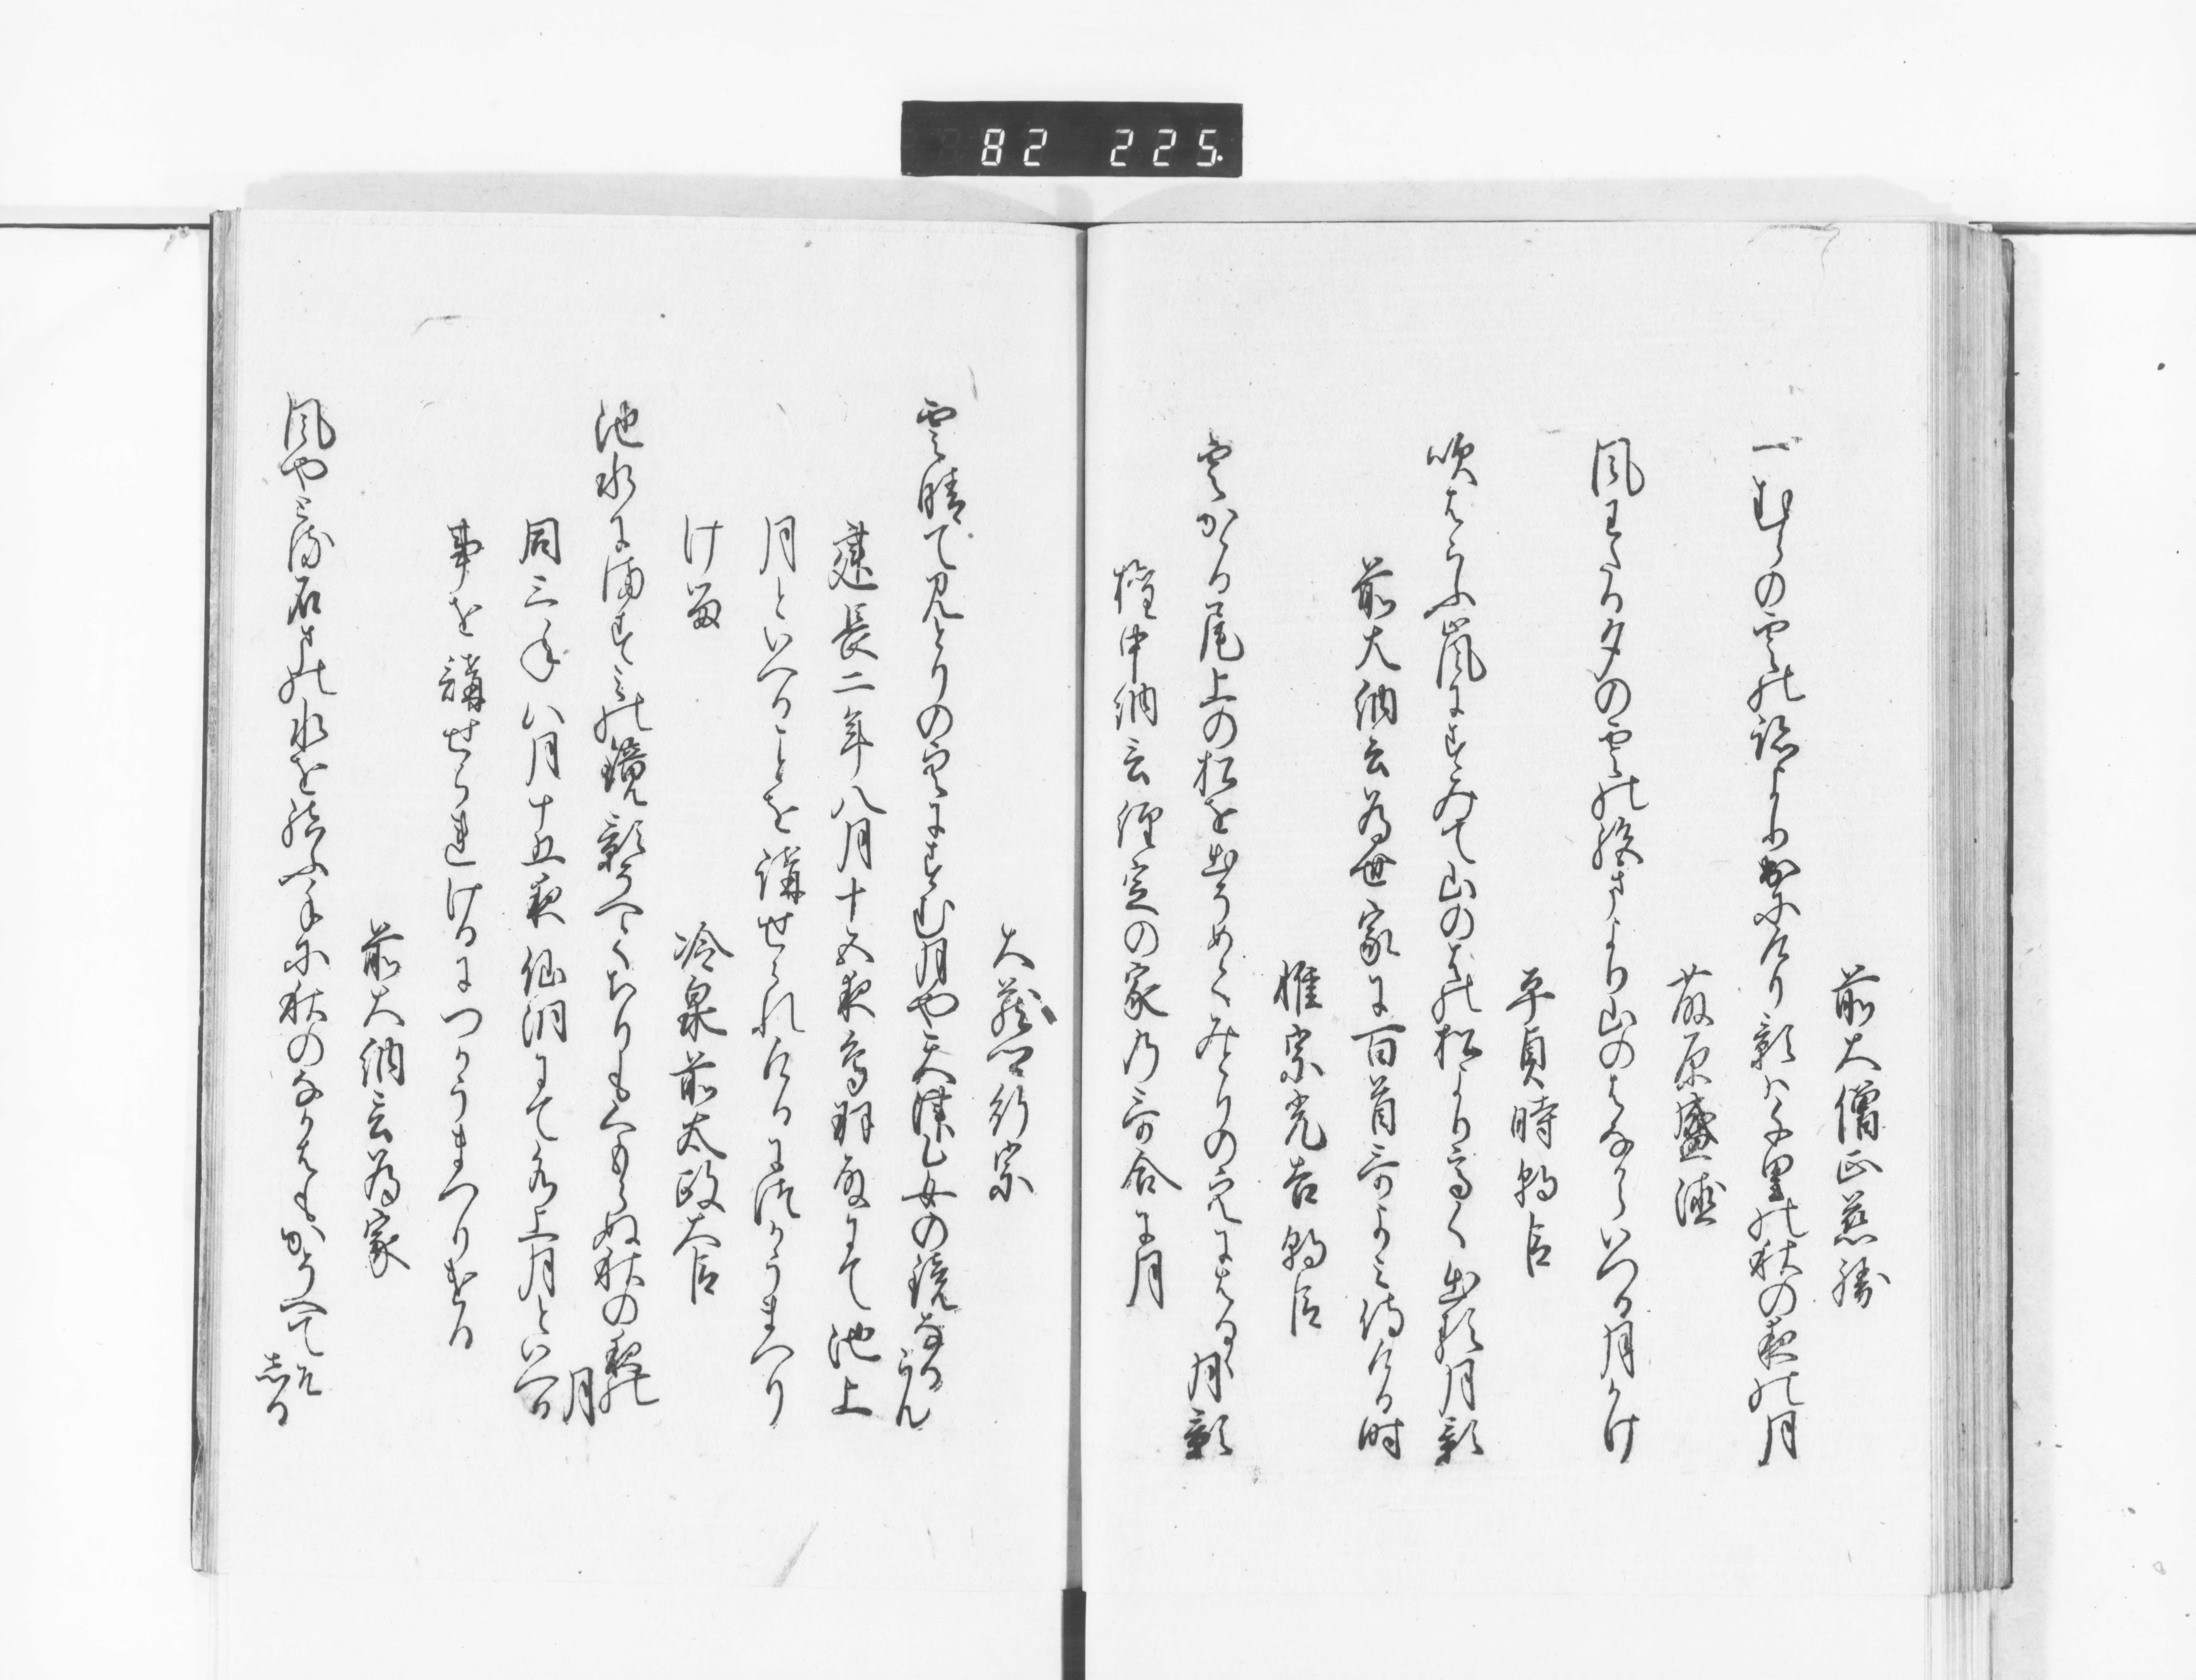 82 225.
前大僧正慈勝
一むらの雲の跡より出にけり影は千里の秋の夜の月
藤原盛徳
風わたる夕の雲の絶まより山のはなからいつる月かけ
平貞時朝臣
吹はらふ嵐にすみて山のはの松より高く出る月影
前大納言為世家に百首哥よみ侍ける時
惟宗光吉朝臣
雲かゝる尾上の松を出うめてみとりの空にはるゝ月影
権中納言経定の家乃哥合に月
大蔵卿行宗
雲晴てみとりの空にすむ月や天津乙女の鏡なるらん
建長二年八月十五夜鳥羽殿にて池上
月といへることを講せられけるにつかうまつり
けるに
冷泉前太政大臣
池水にますみの鏡影うへてちりもくもらぬ秋の夜の月
同三年八月十五夜仙洞にて水上月といへる
事を講せられけるにつかうまつりける
前大納言為家
風やまぬ石まの水を結ふ手に秋のなかはもかそへてそしる